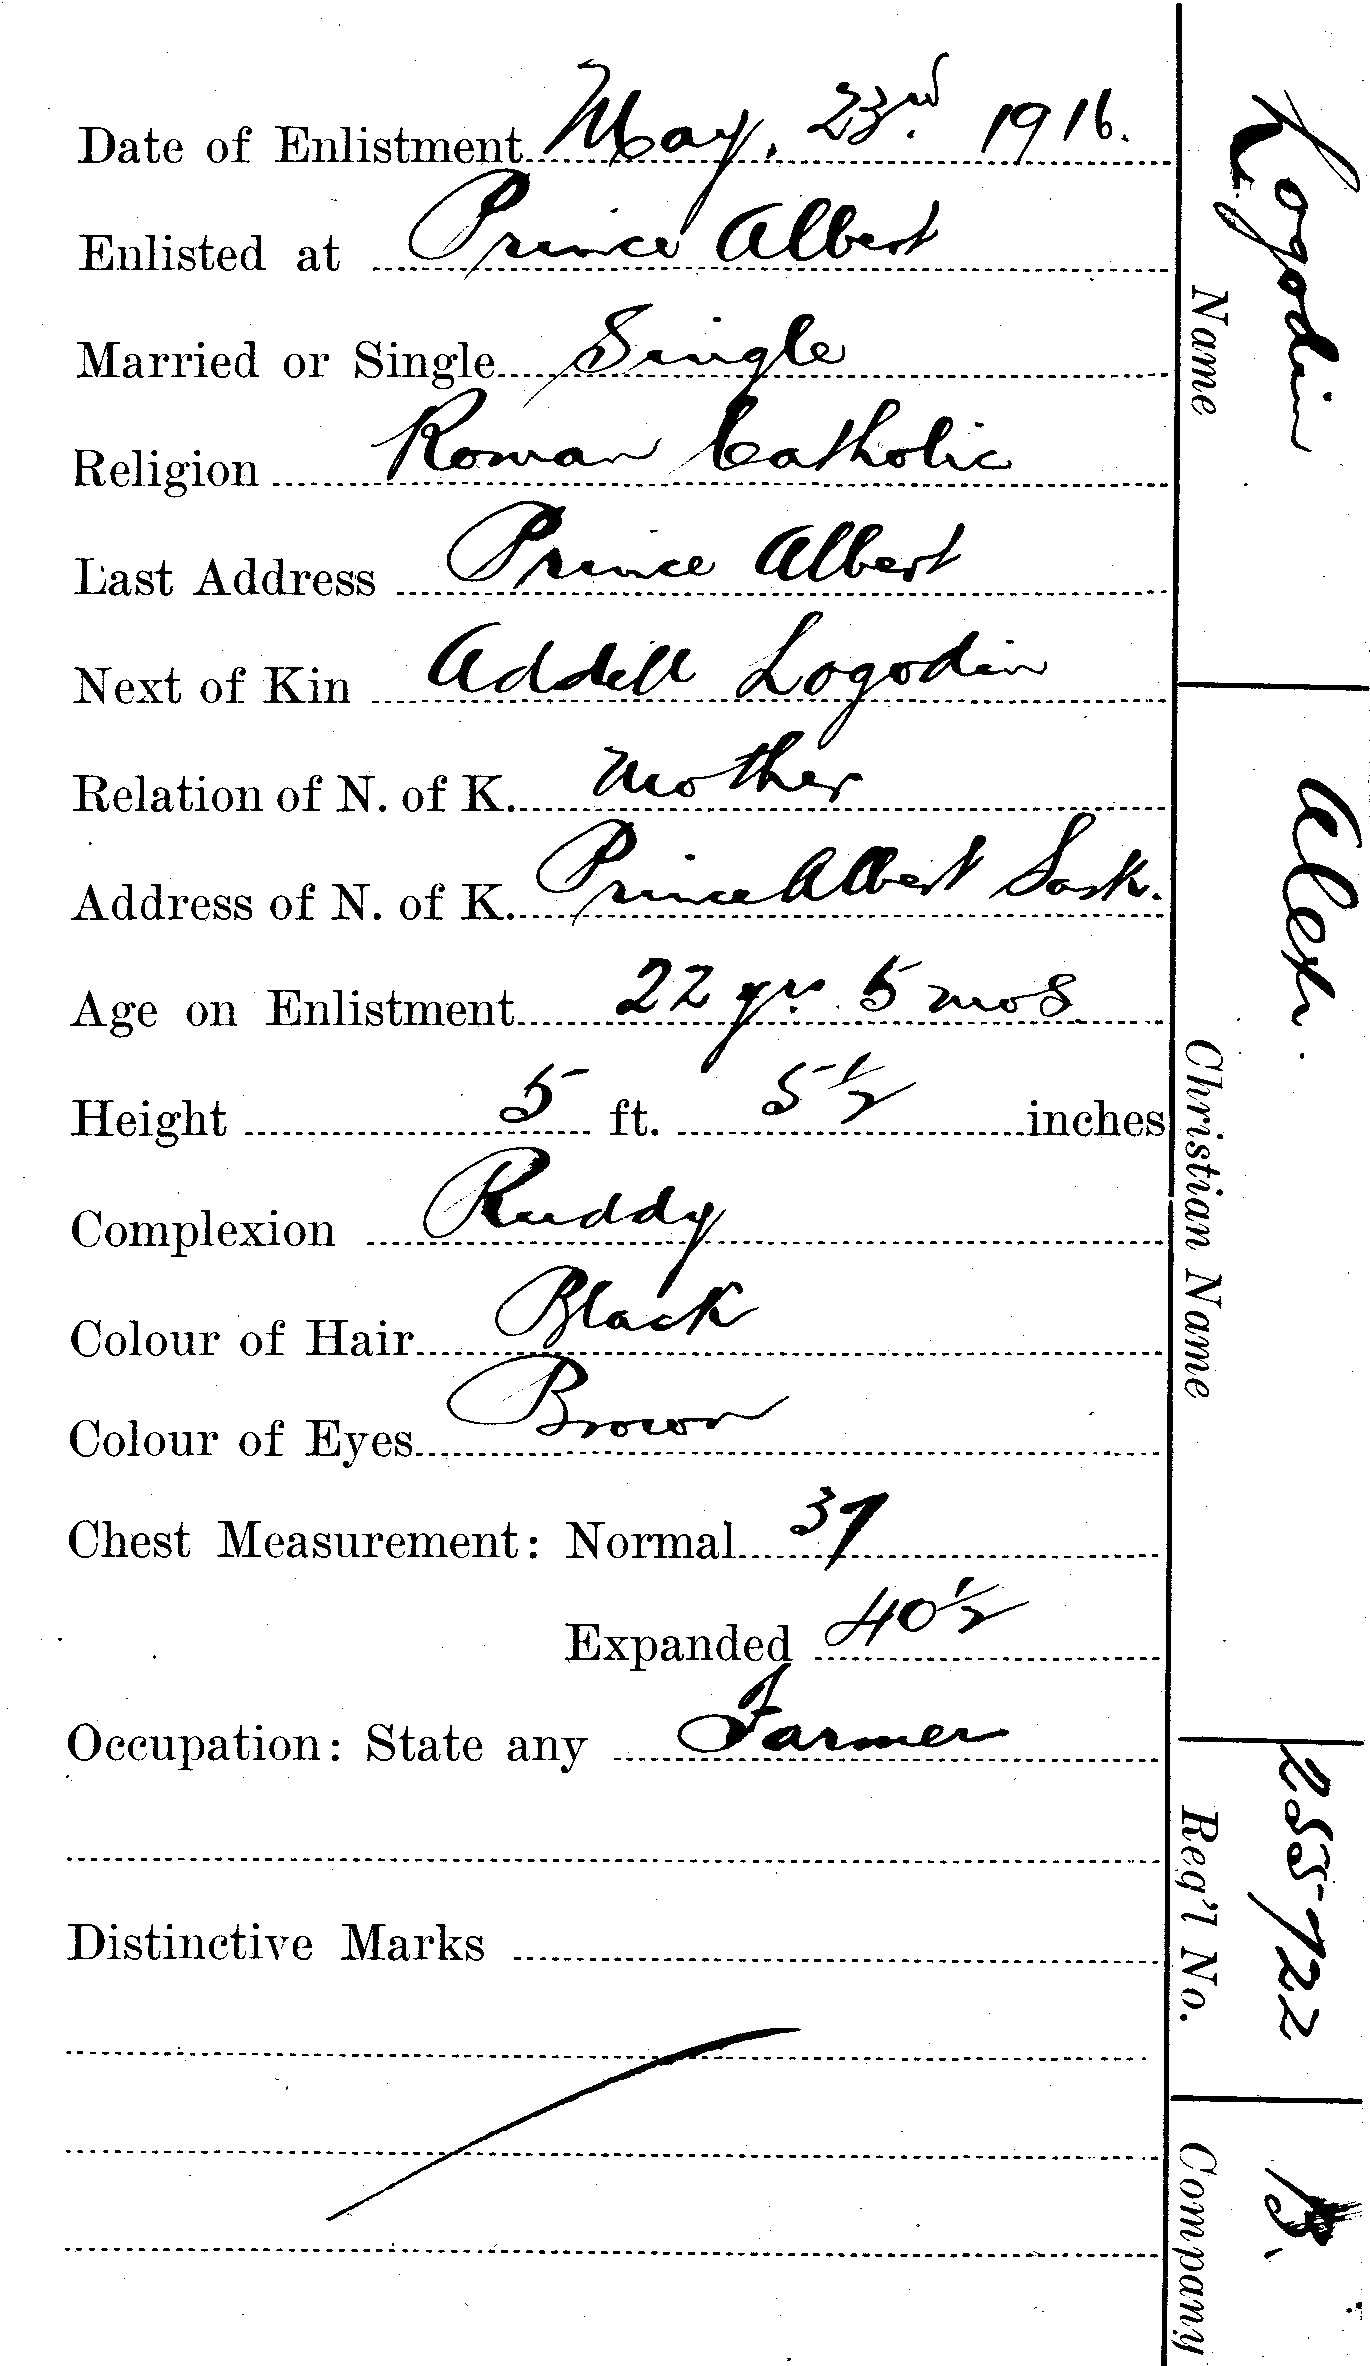 Date of Enlistment May, 23rd. 1916.
Enlisted at Prince Albert
Married or Single Single
Religion Roman Catholic
Last Address Prince Albert
Next of Kin Addell Logodin
Relation of N. of K. Mother
Address of N. of K. Prince Albert Sask.
Age on Enlistment 22 yrs. 5 mos.
Height 5 ft. 5 1/2 inches
Complexion Ruddy
Colour of Hair Black
Colour of Eyes Brown
Chest Measurement: Normal 37
Expanded 40 1/2
Occupation: State any Farmer
Distinctive Marks
Logodin
Name
Alex.
Christian Name
255722
Reg'l No.
B.
Company